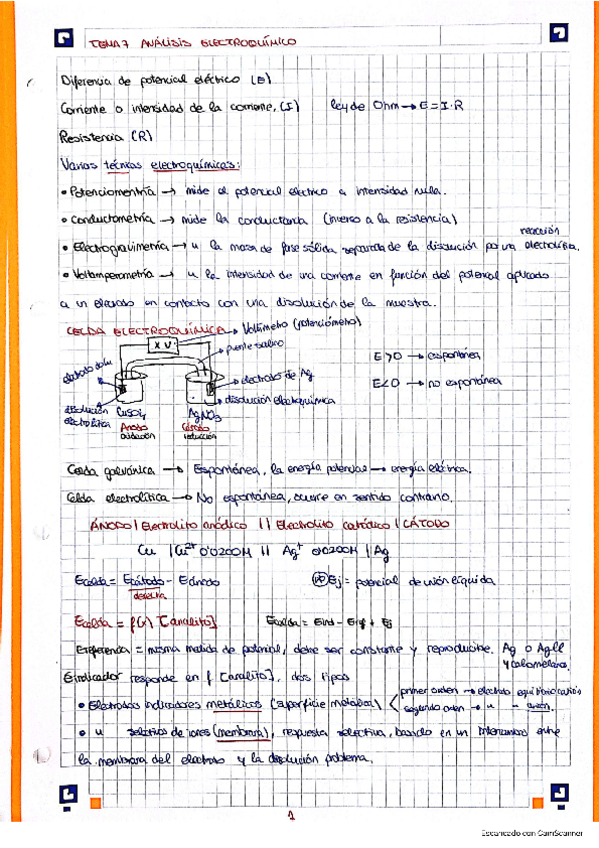 TEMA 7 ANÁLISIS ELECTROQUÍMICO
Diferencia de potencial eléctrico (E)
Corriente o intensidad de la corriente, (I) ley de Ohm → E = I·R
Resistencia (R)
Varios técnicas electroquímicas:
• Potenciometría → mide el potencial eléctrico a intensidad nula.
• Conductometría → mide la conductancia (inverso a la resistencia)
• Electrogravimetría → u la masa de fase sólida separada de la disolución por una reacción electrolítica.
• Voltamperometría → u la intensidad de una corriente en función del potencial aplicado
a un electrodo en contacto con una disolución de la muestra.
CELDA ELECTROQUÍMICA → Voltímetro (potenciómetro)
X V
puente salino
electrodo de Cu
electrodo de Ag
disolución electroquímica
disolución electrolítica
CuSO4
AgNO3
Ánodo oxidación
Cátodo reducción
E>0 → espontánea
E<0 → no espontánea
Celda galvánica → Espontánea, la energía potencial → energía eléctrica.
Celda electrolítica → No espontánea, ocurre en sentido contrario.
ÁNODO | Electrolito anódico || Electrolito catódico | CÁTODO
Cu | Cu2+ 0'0200M || Ag+ 0'0200M | Ag
Ecelda = Ecátodo - Eánodo
derecha
Ej = potencial de unión líquida
Ecelda = f(x) [analito]
Ecelda = Eind - Eref + Ej
Ereferencia = misma medida de potencial, debe ser constante y reproducible. Ag o AgCl
y calomelanos.
Eindicador responde en f [analito], dos tipos
• Electrodos indicadores metálicos (superficie metálica) primer orden → electrodo equilibrio catión
segundo orden → u - anión.
• u selectivos de iones (membrana), respuesta selectiva, basando en un intercambio entre
la membrana del electrodo y la disolución problema.
1
Escaneado con CamScanner